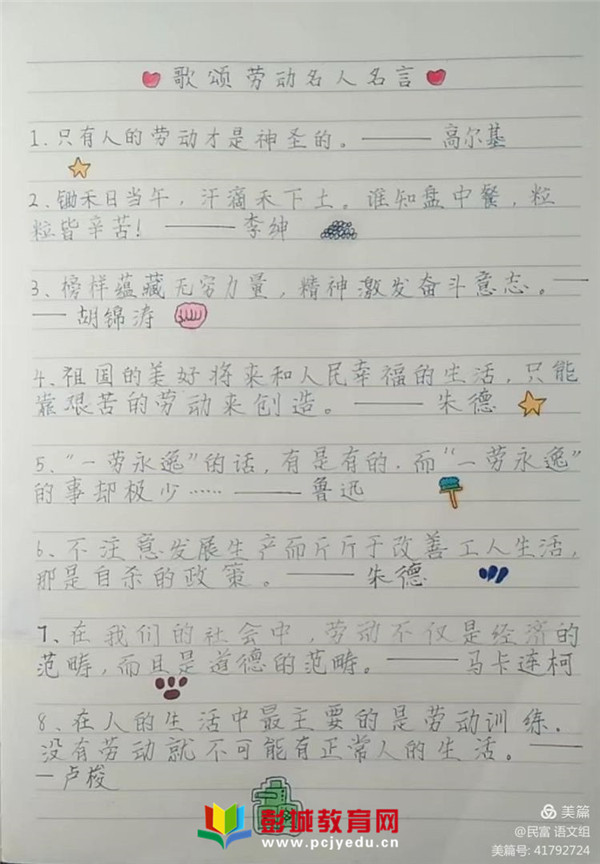 歌颂劳动名人名言
1.只有人的劳动才是神圣的。——高尔基
2、锄禾日当午，汗滴禾下土。谁知盘中餐，粒
粒皆辛苦！——李绅
3、榜样蕴藏无穷力量，精神激发奋斗意志。—
—胡锦涛
4、祖国的美好将来和人民幸福的生活，只能
靠艰苦的劳动来创造。——朱德
5、“一劳永逸”的话，有是有的.而“一劳永逸”
的事却极少……——鲁迅
6、不注意发展生产而斤斤于改善工人生活，
那是自杀的政策。——朱德
7、在我们的社会中，劳动不仅是经济的
范畴，而且是道德的范畴。——马卡连柯
8、在人的生活中最主要的是劳动训练.
没有劳动就不可能有正常人的生活。—
—卢梭
彭城教育网
www.pcjyedu.cn
美篇
@民富 语文组
美篇号: 41792724